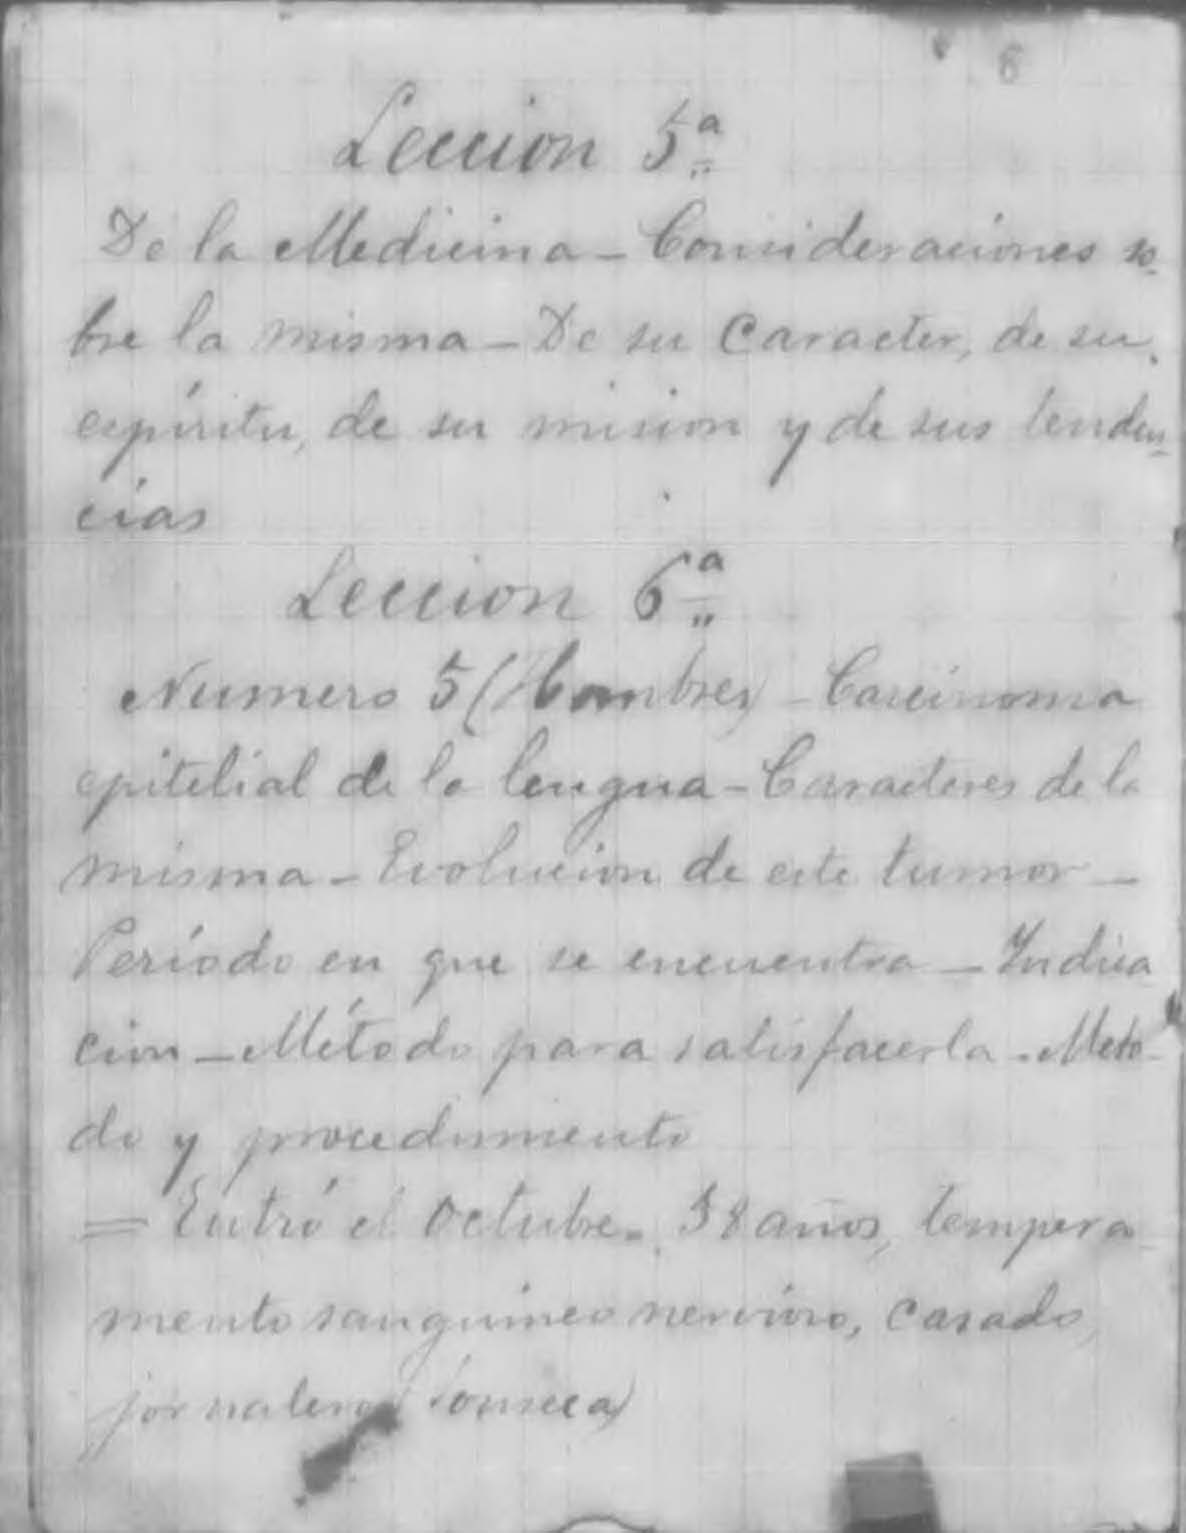 8
Leccion 5ª
De la Medicina - Consideraciones so-
bre la misma - De su Caracter, de su
espíritu, de su mision y de sus tenden-
cias
Leccion 6ª
Numero 5 (Hombres) - Carcinoma
epitelial de la lengua - Caracteres de la
misma - Evolucion de este tumor -
Período en que se encuentra - Indica
cion - Método para satisfacerla - Meto-
do y procedimiento
= Entró el Octubre - 38 años, tempera-
mento sanguineo nervioso, Casado,
jornalero (Fonseca)